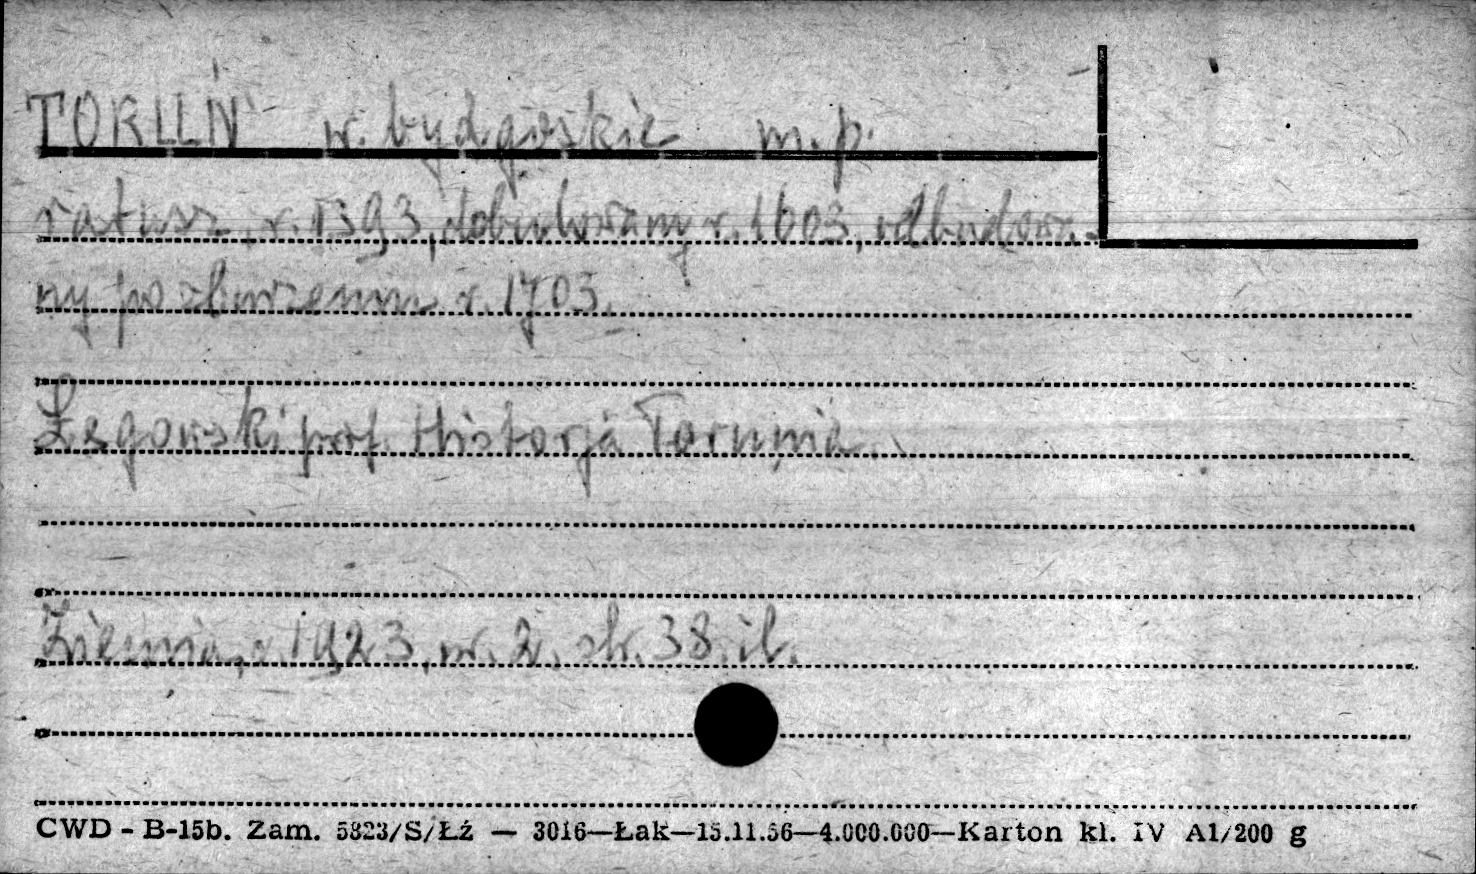 TORUŃ w. bydgoskie m.p.
ratusz, r. 1393, dobudowany r. 1603, odbudowa-
ny po zburzeniu r. 1703.
Łęgowski prof. Historja Torunia.
Ziemia, r. 1923, nr. 2. str. 38. il.
CWD - B-15b. Zam. 5823/S/Łź — 3016—Łak—15.11.56—4.000.000—Karton kl. IV A1/200 g